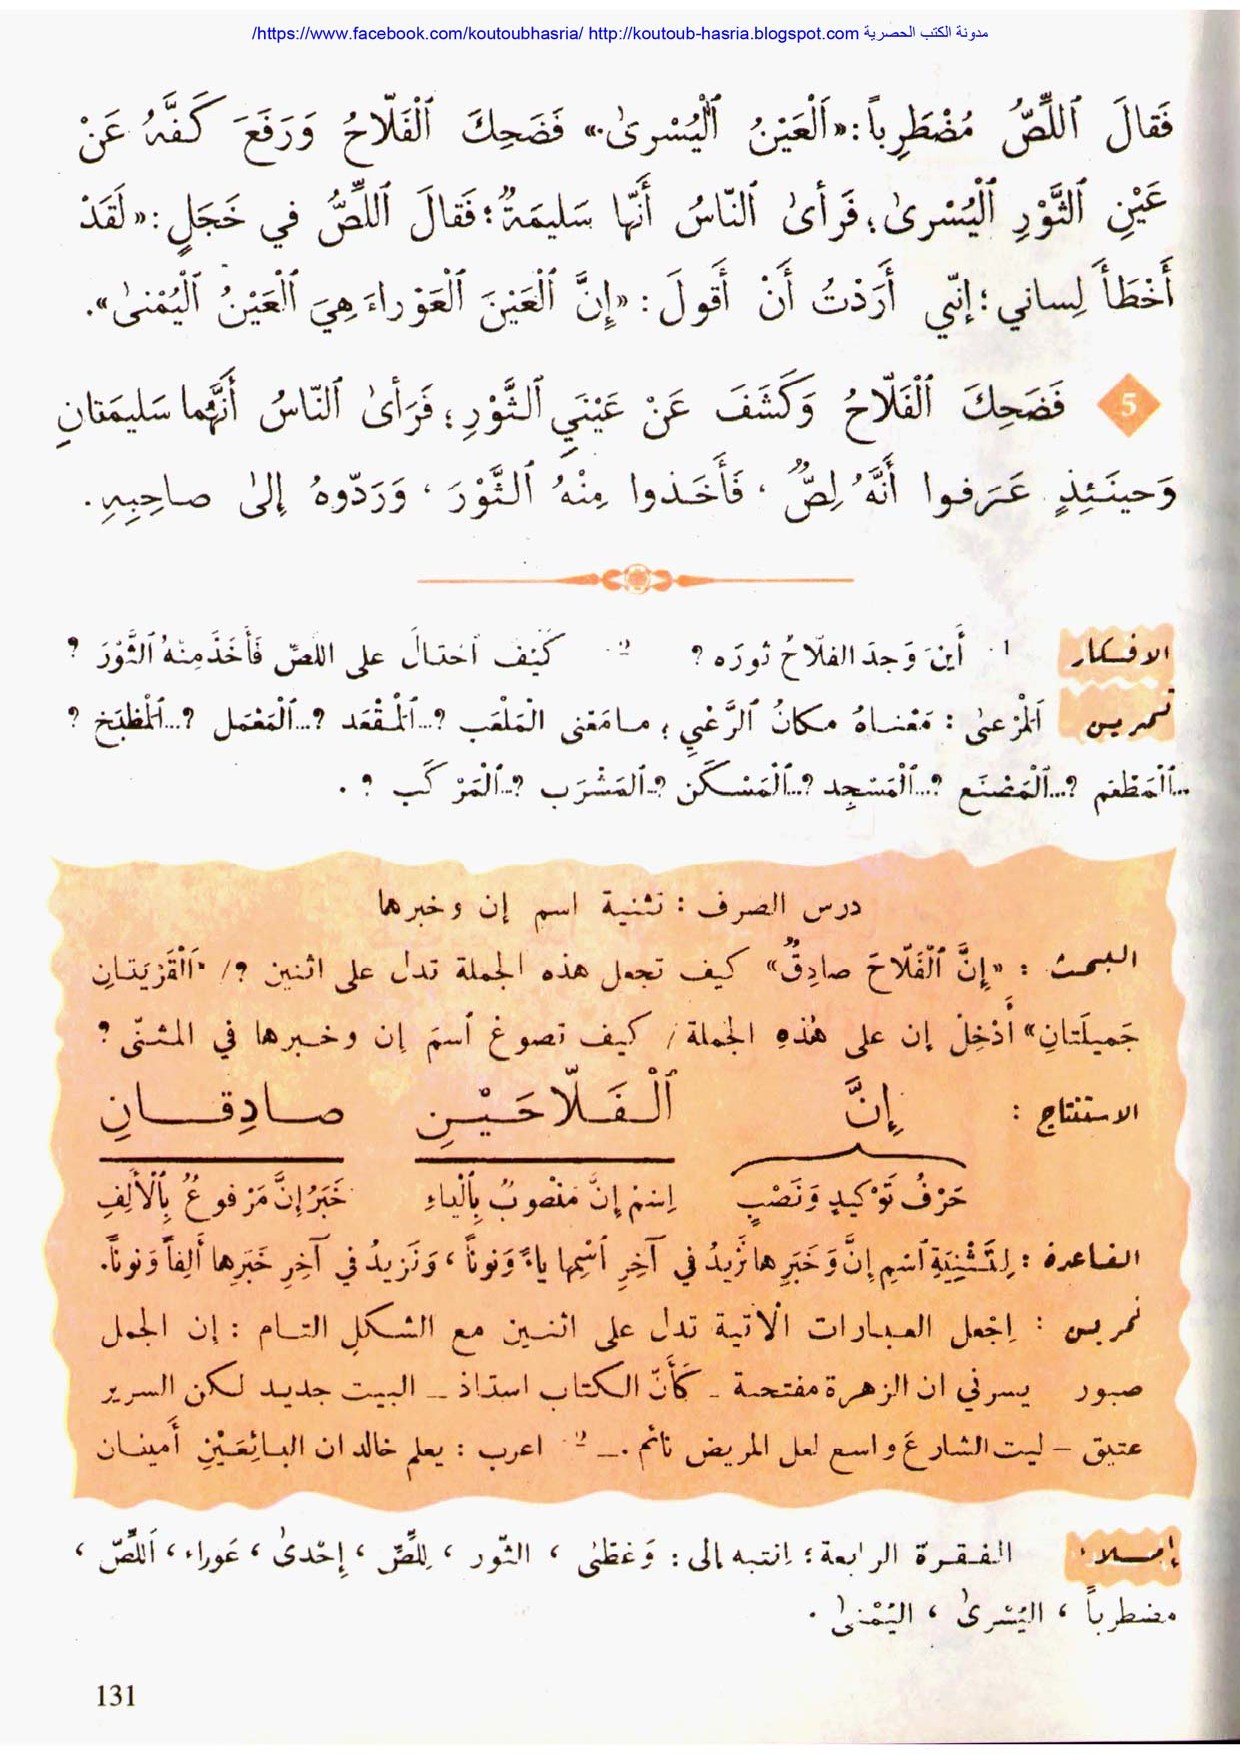 /https://www.facebook.com/koutoubhasria/ http://koutoub-hasria.blogspot.com مدونة الكتب الحصرية
فَقالَ ٱللِّصُّ مُضْطَرِباً: «اَلْعَيْنُ ٱلْيُسْرىٰ.» فَضَحِكَ ٱلْفَلّاحُ وَرَفَعَ كَفَّهُ عَنْ
عَيْنِ ٱلثَّوْرِ ٱلْيُسْرىٰ؛ فَرَأىٰ ٱلنّاسُ أَنَّها سَليمَةٌ؛ فَقالَ ٱللِّصُّ في خَجَلٍ: «لَقَدْ
أَخْطَأَ لِساني؛ إنّي أَرَدْتُ أَنْ أَقولَ: «إِنَّ ٱلْعَيْنَ ٱلْعَوْراءَ هِيَ ٱلْعَيْنُ ٱلْيُمْنىٰ».
5 فَضَحِكَ ٱلْفَلّاحُ وَكَشَفَ عَنْ عَيْنَيِ ٱلثَّوْرِ؛ فَرَأىٰ ٱلنّاسُ أَنَّهُما سَليمَتانِ
وَحينَئِذٍ عَرَفوا أَنَّهُ لِصٌّ، فَأَخَذوا مِنْهُ ٱلثَّوْرَ، وَرَدّوهُ إِلىٰ صاحِبِهِ.
الافكار 1. أَينَ وَجدَ الفلّاحُ ثورَه ؟ 2. كَيْف ٱحتالَ على اللصّ فَأَخَذَ مِنْهُ ٱلثَّوْرَ ؟
تمرين اَلْمَرْعىٰ : مَعْناهُ مكانُ ٱلرَّعْيِ ؛ مامَعْنى الْمَلْعَب ؟...ٱلْمَقْعَد ؟...ٱلْمَعْمَل ؟...ٱلْمَطْبَخ ؟
...ٱلْمَطْعَم ؟...ٱلْمَصْنَع ؟...ٱلْمَسْجِد ؟...ٱلْمَسْكَن ؟...ٱلْمَشْرَب ؟...ٱلْمَرْكَب ؟ .
درس الصرف : تثنية اسم إن وخبرها
البحث : «إِنَّ ٱلْفَلّاحَ صادِقٌ» كيف تجعل هذه الجملة تدل على اثنين ؟/ «اَلْقَرْيَتانِ
جَميلَتانِ» أَدْخِلْ إن على هٰذهِ الجملة / كيف تصوغ ٱسمَ إن وخبرها في المثنّى ؟
الاستنتاج : إِنَّ ٱلْفَلّاحَيْنِ صادِقانِ
حَرْفُ تَوْكيدٍ وَنَصْبٍ اِسْمُ إِنَّ مَنْصوبٌ بِٱلْياءِ خَبَرُ إِنَّ مَرْفوعٌ بِٱلْأَلِفِ
القاعدة : لِتَثْنِيَةِ ٱسْمِ إِنَّ وَخَبَرِها نَزيدُ في آخِرِ ٱسْمِها ياءً وَنوناً، وَنَزيدُ في آخِرِ خَبَرِها أَلِفاً وَنوناً.
تمرين : اِجْعل العبارات الآتية تدل على اثنين مع الشكلِ التام : إن الجمل
صبور يسرني ان الزهرة مفتحة ـ كَأَنّ الكتاب استاذ ــ البيت جديد لكن السرير
عتيق – ليت الشارعَ واسع لعل المريض نائم .ــ 2. اعرب : يعلم خالد ان البائِعَيْنِ أَمينان
إملاء الفقرة الرابعة؛ اِنتبه إلى: وَغطّىٰ ، الثّور ، لِلصِّ ، إحْدىٰ ، عَوراء ، اَللِّصّ ،
مضطرباً ، اليُسْرىٰ ، اليُمْنىٰ .
131